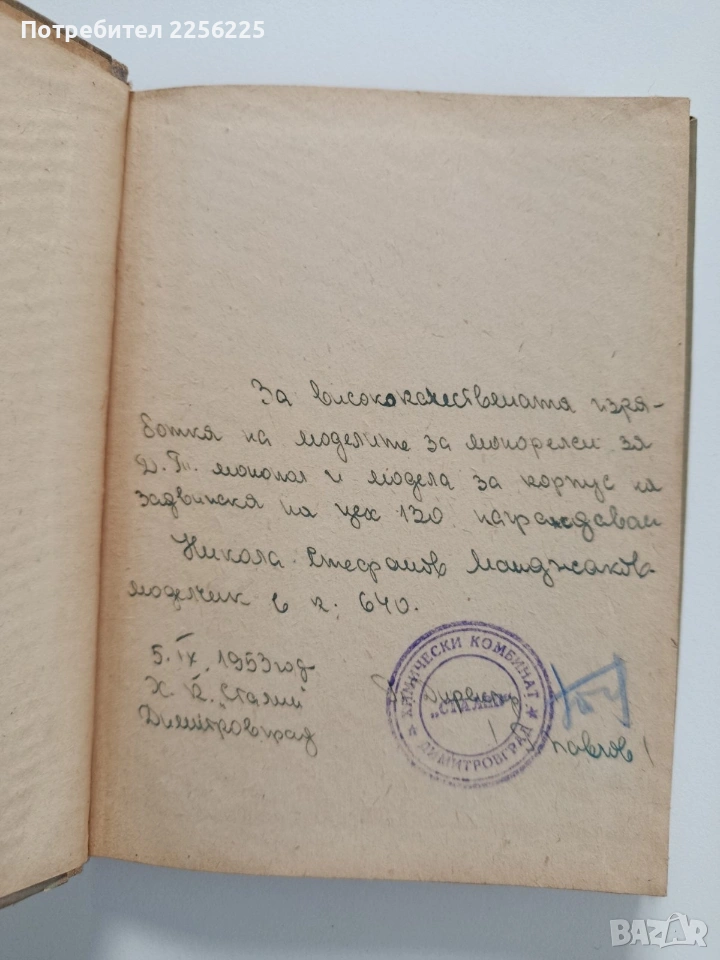 Потребител 2256225
За висококачествената изра-
ботка на моделите за монорелси за
Д.П. монопол и модела за корпус на
задвижка на цех 130 награждавам
Никола Стефанов Манджаков -
моделчик в к. 640.
5.IX.1953 год
Х.К. „Сталин"
Димитровград
Директор
/Павлов/
★ ХИМИЧЕСКИ КОМБИНАТ ★
„СТАЛИН"
ДИМИТРОВГРАД
BAZAR